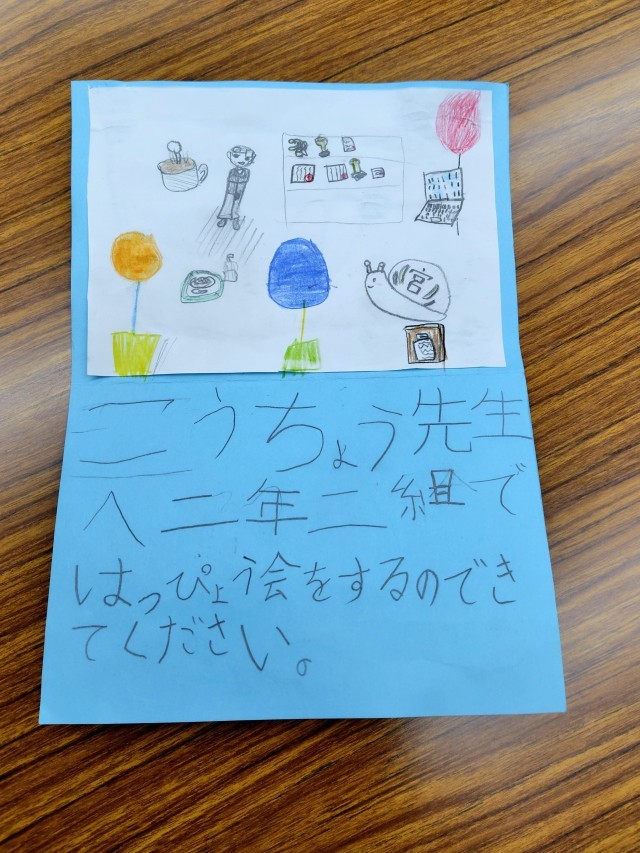 宮
こうちょう先生
へ二年二組で
はっぴょう会をするのでき
てください。